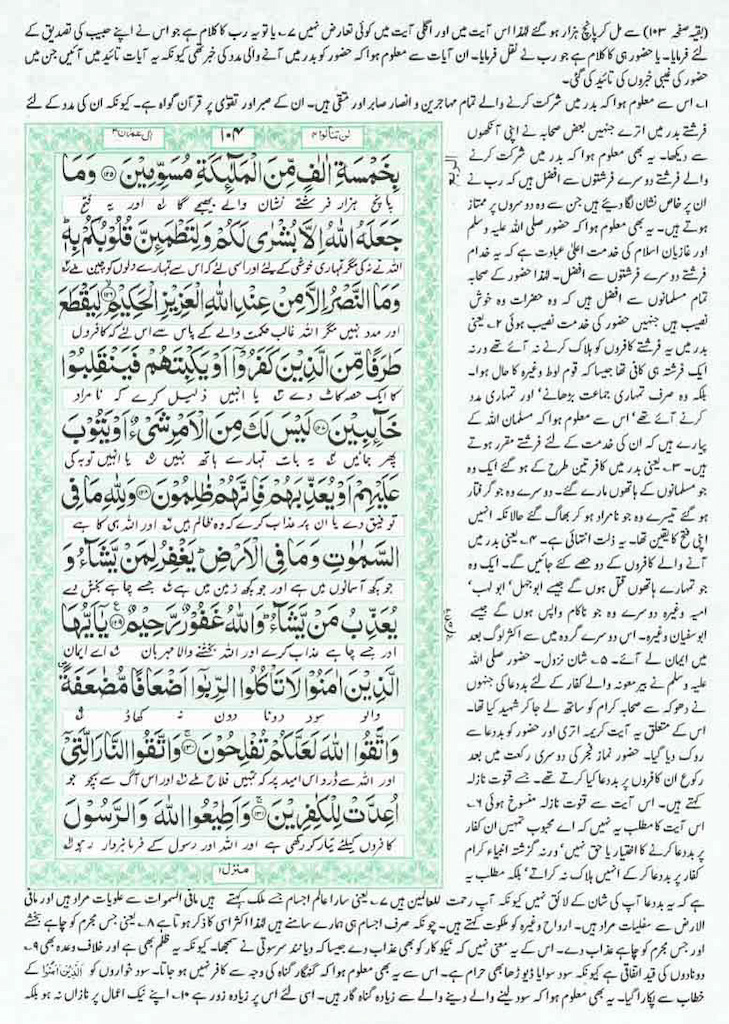 (بقیہ صفحہ ۱۰۳) سے مل کر پانچ ہزار ہو گئے لہٰذا اس آیت میں اور اگلی آیت میں کوئی تعارض نہیں ۷۔ یا تو یہ رب کا کلام ہے جو اس نے اپنے حبیب کی تصدیق کے
لئے فرمایا۔ یا حضور ہی کا کلام ہے جو رب نے نقل فرمایا۔ ان آیات سے معلوم ہوا کہ حضور کو بدر میں آنے والی مدد کی خبر تھی کیونکہ یہ آیات تائید میں آئیں جن میں
حضور کی غیبی خبروں کی تائید کی گئی۔
۱۔ اس سے معلوم ہوا کہ بدر میں شرکت کرنے والے تمام مہاجرین و انصار صابر اور متقی ہیں۔ ان کے صبر اور تقویٰ پر قرآن گواہ ہے۔ کیونکہ ان کی مدد کے لئے
فرشتے بدر میں اترے جنہیں بعض صحابہ نے اپنی آنکھوں
سے دیکھا۔ یہ بھی معلوم ہوا کہ بدر میں شرکت کرنے
والے فرشتے دوسرے فرشتوں سے افضل ہیں کہ رب نے
ان پر خاص نشان لگا دیئے ہیں جن سے وہ دوسروں پر ممتاز
ہوتے ہیں۔ یہ بھی معلوم ہوا کہ حضور صلی اللہ علیہ وسلم
اور غازیان اسلام کی خدمت اعلیٰ عبادت ہے کہ یہ خدام
فرشتے دوسرے فرشتوں سے افضل۔ لہٰذا حضور کے صحابہ
تمام مسلمانوں سے افضل ہیں کہ وہ حضرات وہ خوش
نصیب ہیں جنہیں حضور کی خدمت نصیب ہوئی ۲۔ یعنی
بدر میں یہ فرشتے کافروں کو ہلاک کرنے نہ آئے تھے ورنہ
ایک فرشتہ ہی کافی تھا جیسا کہ قوم لوط وغیرہ کا حال ہوا۔
بلکہ وہ صرف تمہاری جماعت بڑھانے' اور تمہاری مدد
کرنے آئے تھے' اس سے معلوم ہوا کہ مسلمان اللہ کے
پیارے ہیں کہ ان کی خدمت کے لئے فرشتے مقرر ہوتے
ہیں۔ ۳۔ یعنی بدر میں کافر تین طرح کے ہو گئے ایک وہ
جو مسلمانوں کے ہاتھوں مارے گئے۔ دوسرے وہ جو گرفتار
ہو گئے تیسرے وہ جو نامراد ہو کر بھاگ گئے حالانکہ انہیں
اپنی فتح کا یقین تھا۔ یہ ذلت انتہائی ہے۔ ۴۔ یعنی بدر میں
آنے والے کافروں کے دو حصے کئے جائیں گے۔ ایک وہ
جو تمہارے ہاتھوں قتل ہوں گے جیسے ابوجہل' ابو لہب'
امیہ وغیرہ دوسرے وہ جو ناکام واپس ہوں گے جیسے
ابوسفیان وغیرہ۔ اس دوسرے گروہ میں سے اکثر لوگ بعد
میں ایمان لے آئے۔ ۵۔ شان نزول۔ حضور صلی اللہ
علیہ وسلم نے بیر معونہ والے کفار کے لئے بددعا کی جنہوں
نے دھوکہ سے صحابہ کرام کو ساتھ لے جا کر شہید کیا تھا۔
اس کے متعلق یہ آیت کریمہ اتری اور حضور کو بددعا سے
روک دیا گیا۔ حضور نماز فجر کی دوسری رکعت میں بعد
رکوع ان کافروں پر بددعا کیا کرتے تھے۔ جسے قنوت نازلہ
کہتے ہیں۔ اس آیت سے قنوت نازلہ منسوخ ہوئی ۶۔
اس آیت کا مطلب یہ نہیں کہ اے محبوب تمہیں ان کفار
پر بددعا کرنے کا اختیار یا حق نہیں' ورنہ گزشتہ انبیاء کرام
کفار پر بددعا کر کے انہیں ہلاک نہ کراتے' بلکہ مطلب یہ
لن تنالوا ۴
۱۰۴
اٰل عمرٰن ۳
بِخَمْسَةِ اٰلٰفٍ مِّنَ الْمَلٰٓئِكَةِ مُسَوِّمِیْنَ ۝۱۲۵ وَمَا
پانچ ہزار فرشتے نشان والے بھیجے گا اور یہ فتح
جَعَلَهُ اللّٰهُ اِلَّا بُشْرٰى لَكُمْ وَلِتَطْمَىِٕنَّ قُلُوْبُكُمْ بِهٖ ؕ
اللہ نے نہ کی مگر تمہاری خوشی کے لئے اور اسی لئے کہ اس سے تمہارے دلوں کو چین ملے
وَمَا النَّصْرُ اِلَّا مِنْ عِنْدِ اللّٰهِ الْعَزِیْزِ الْحَكِیْمِ ۝۱۲۶ لِیَقْطَعَ
اور مدد نہیں مگر اللہ غالب حکمت والے کے پاس سے اس لئے کہ کافروں
طَرَفًا مِّنَ الَّذِیْنَ كَفَرُوْۤا اَوْ یَكْبِتَهُمْ فَیَنْقَلِبُوْا
کا ایک حصہ کاٹ دے یا انہیں ذلیل کرے کہ نامراد
خَآىِٕبِیْنَ ۝۱۲۷ لَیْسَ لَكَ مِنَ الْاَمْرِ شَیْءٌ اَوْ یَتُوْبَ
پھر جائیں یہ بات تمہارے ہاتھ نہیں یا انہیں توبہ کی
عَلَیْهِمْ اَوْ یُعَذِّبَهُمْ فَاِنَّهُمْ ظٰلِمُوْنَ ۝۱۲۸ وَلِلّٰهِ مَا فِی
توفیق دے یا ان پر عذاب کرے کہ وہ ظالم ہیں اور اللہ ہی کا ہے
السَّمٰوٰتِ وَمَا فِی الْاَرْضِ ؕ یَغْفِرُ لِمَنْ یَّشَآءُ وَ
جو کچھ آسمانوں میں ہے اور جو کچھ زمین میں ہے جسے چاہے بخش دے
یُعَذِّبُ مَنْ یَّشَآءُ ؕ وَاللّٰهُ غَفُوْرٌ رَّحِیْمٌ ۝۱۲۹ یٰۤاَیُّهَا
اور جسے چاہے عذاب کرے اور اللہ بخشنے والا مہربان اے ایمان
الَّذِیْنَ اٰمَنُوْا لَا تَاْكُلُوا الرِّبٰۤوا اَضْعَافًا مُّضٰعَفَةً ۪
والو سود دونا دون نہ کھاؤ
وَاتَّقُوا اللّٰهَ لَعَلَّكُمْ تُفْلِحُوْنَ ۝۱۳۰ وَاتَّقُوا النَّارَ الَّتِیْۤ
اور اللہ سے ڈرو اس امید پر کہ تمہیں فلاح ملے اور اس آگ سے بچو جو
اُعِدَّتْ لِلْكٰفِرِیْنَ ۝۱۳۱ وَاَطِیْعُوا اللّٰهَ وَالرَّسُوْلَ
کافروں کیلئے تیار کر رکھی ہے اور اللہ اور رسول کے فرمانبردار رہو
منزل ۱
ہے کہ یہ بددعا آپ کی شان کے لائق نہیں کیونکہ آپ رحمت للعالمین ہیں ۷۔ یعنی سارا عالم اجسام جسے ملک کہتے ہیں مافی السموات سے علویات مراد ہیں اور مافی
الارض سے سفلیات مراد ہیں۔ ارواح وغیرہ کو ملکوت کہتے ہیں۔ چونکہ صرف اجسام ہی ہمارے سامنے ہیں لہٰذا اکثر اسی کا ذکر ہوتا ہے ۸۔ یعنی جس مجرم کو چاہے بخشے
اور جس مجرم کو چاہے عذاب دے۔ اس کے یہ معنی نہیں کہ نیکو کار کو بھی عذاب دے جیسا کہ دیانند سرسوتی نے سمجھا۔ کیونکہ یہ ظلم بھی ہے اور خلاف وعدہ بھی ۹۔
دونادون کی قید اتفاقی ہے کیونکہ سود سوایا ڈیوڑھا بھی حرام ہے۔ اس سے یہ بھی معلوم ہوا کہ گنہگار گناہ کی وجہ سے کافر نہیں ہو جاتا۔ سود خواروں کو الَّذِیْنَ اٰمَنُوْا کے
خطاب سے پکارا گیا۔ یہ بھی معلوم ہوا کہ سود لینے والے دینے والے سے زیادہ گناہ گار ہیں۔ اسی لئے اس پر زیادہ زور ہے ۱۰۔ اپنے نیک اعمال پر نازاں نہ ہو بلکہ